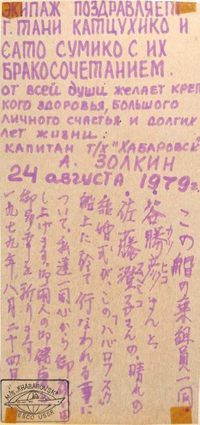 ЭКИПАЖ ПОЗДРАВЛЯЕТ
Г. ТАНИ КАТЦУХИКО И
САТО СУМИКО С ИХ
БРАКОСОЧЕТАНИЕМ.
ОТ ВСЕЙ ДУШИ ЖЕЛАЕТ КРЕП
КОГО ЗДОРОВЬЯ, БОЛЬШОГО
ЛИЧНОГО СЧАСТЬЯ И ДОЛГИХ
ЛЕТ ЖИЗНИ.
КАПИТАН Т/Х "ХАБАРОВСК"
А. ЗОЛКИН
24 августа 1979г.
この船の乗組員一同
谷勝彦さんと
佐藤澄子さんの晴れの
結婚式が、このハバロフスク
船上に於て行なわれる事に
ついて、私達一同心から御
し上げます。御両人の御健康
一九七九年八月二十四日
M/S KHABAROVSK
FESCO USSR